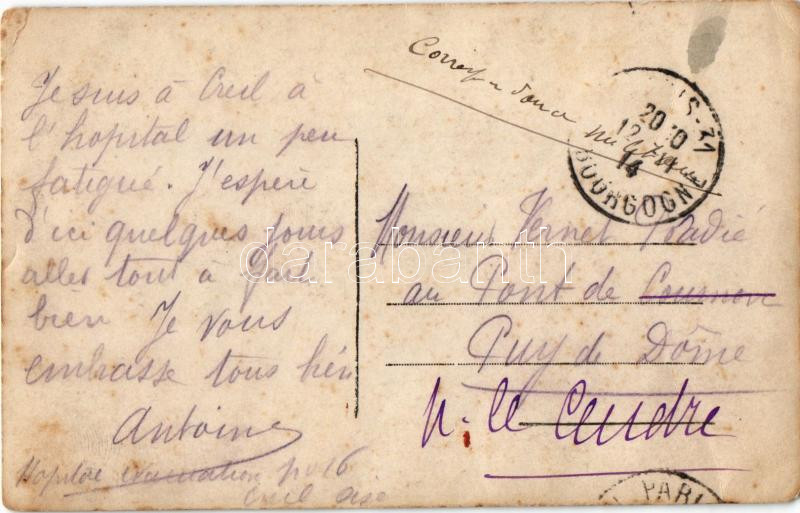 Je suis à Creil à
l'hopital un peu
fatigué. J'espère
d'ici quelques jours
aller tout à fait
bien Je vous
embrasse tous bien
Antoine
Hopital evacuation no 16
Creil Oise
Correspondance militaire
S-31
20 30
12
14
BOURGOGNE
Monsieur Vernet
au Pont de Cournon
Puy de Dôme
p. le Cendre
PARI
darabanth